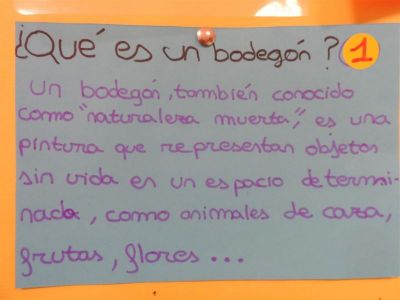 ¿Qué es un bodegón? 1
Un bodegón, también conocido
como "naturaleza muerta", es una
pintura que representan objetos
sin vida en un espacio determi-
nado, como animales de caza,
frutas, flores...